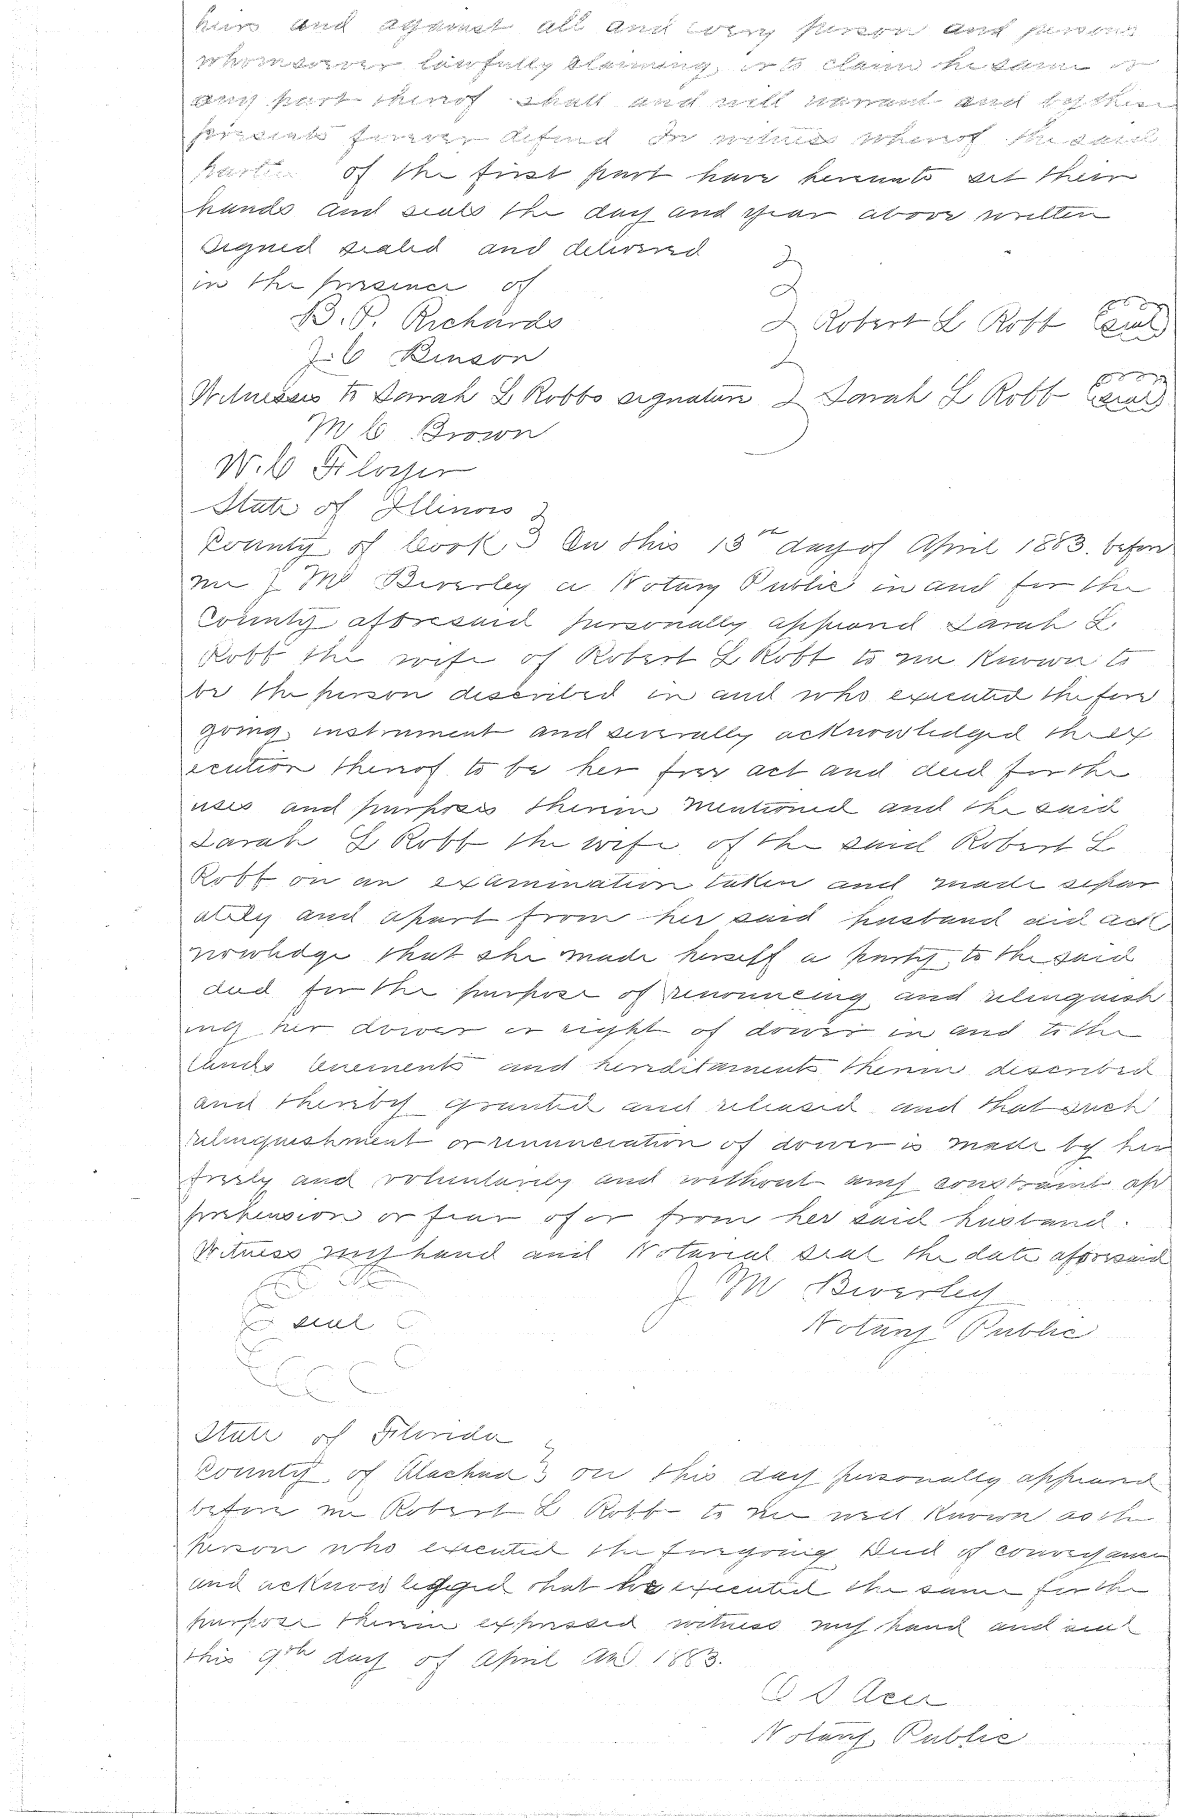 heirs and against all and every person and persons
whomsoever lawfully claiming or to claim the same or
any part thereof shall and will warrant and by these
presents forever defend In witness whereof the said
parties of the first part have hereunto set their
hands and seals the day and year above written
Signed sealed and delivered
in the presence of
B. P. Richards
Robert L Robb (seal)
J. C Benson
Witnesses to Sarah L Robbs signature Sarah L Robb (seal)
M C Brown
W. C
State of Illinois
County of Cook On this 13th day of April 1883. before
me J M Beverley a Notary Public in and for the
County aforesaid personally appeared Sarah L
Robb the wife of Robert L Robb to me known to
be the person described in and who executed the fore
going instrument and severally acknowledged the ex
ecution thereof to be her free act and deed for the
uses and purposes therein mentioned and the said
Sarah L Robb the wife of the said Robert L
Robb on an examination taken and made separ
ately and apart from her said husband did ack
nowledge that she made herself a party to the said
deed for the purpose of renouncing and relinquish
ing her dower or right of dower in and to the
lands tenements and hereditaments therein described
and thereby granted and released and that such
relinquishment or renunciation of dower is made by her
freely and voluntarily and without any constraint ap
prehension or fear of or from her said husband.
Witness my hand and Notarial seal the date aforesaid
J M Beverley
seal
Notary Public
State of Florida
County of Alachua on this day personally appeared
before me Robert L Robb to me well known as the
person who executed the foregoing Deed of conveyance
and acknowledged that he executed the same for the
purpose therein expressed witness my hand and seal
this 9th day of April AD 1883.
Notary Public